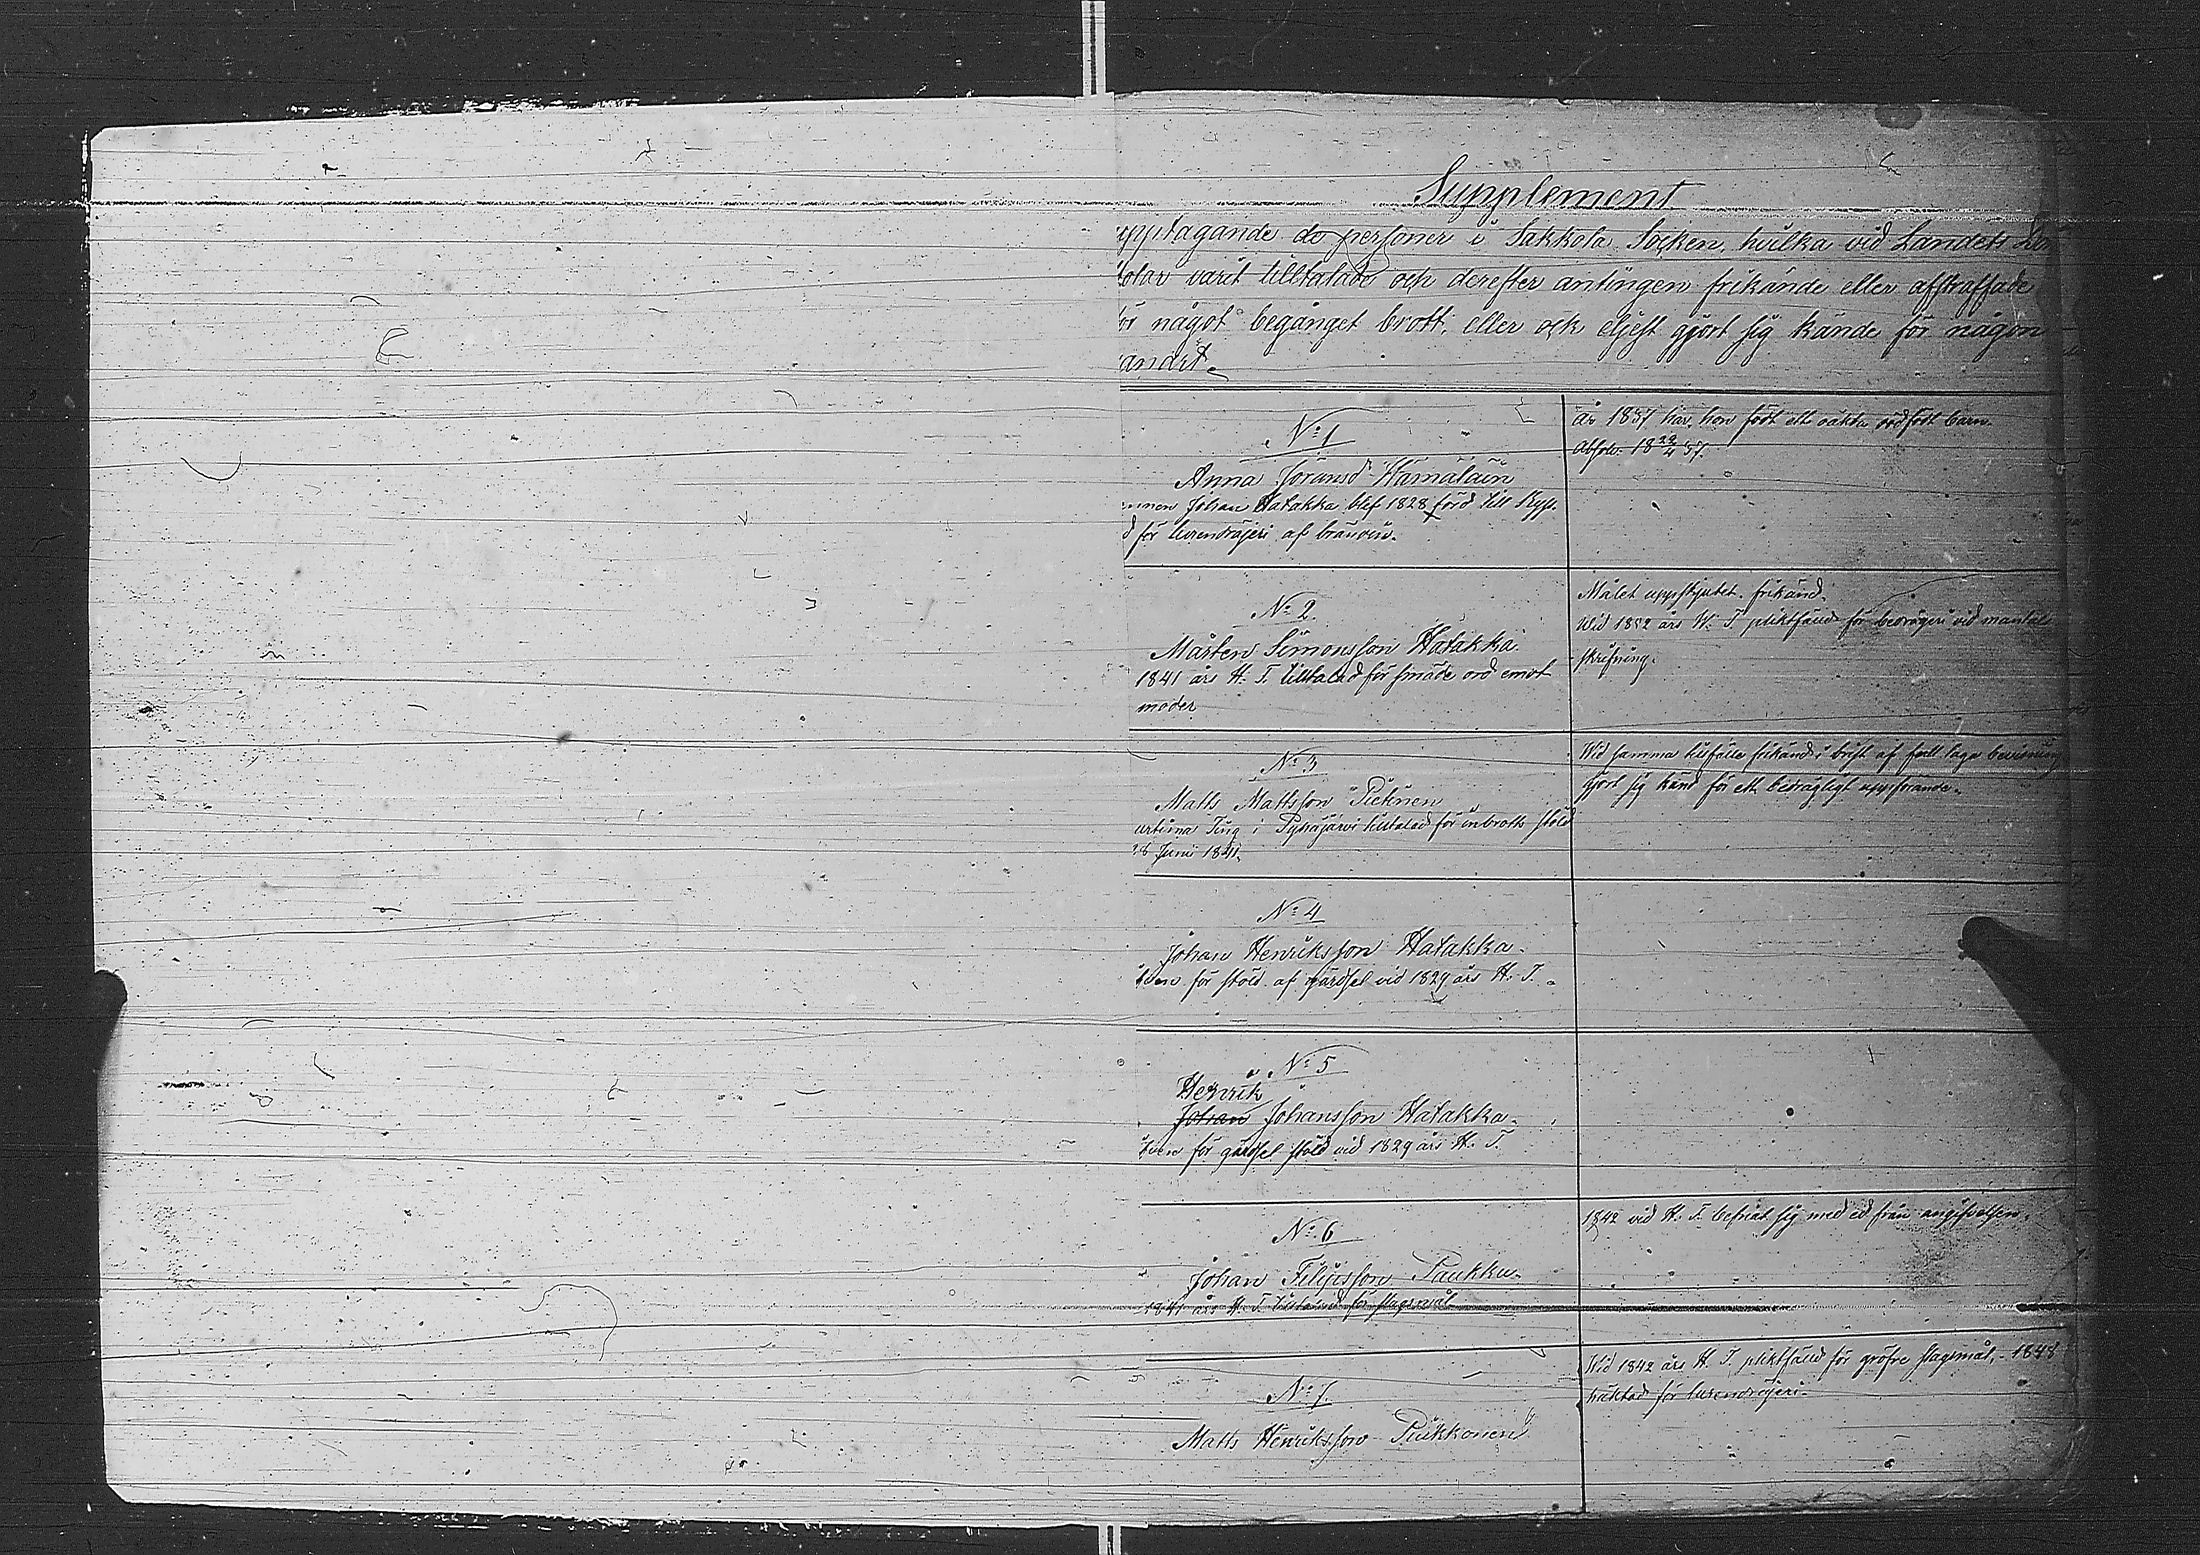 Supplement
upptagande de personer i Sakkola Socken hvilka vid Landets Do
tolar varit tilltalade och derefter antingen frikände eller afstraffade
för något begånget brott, eller ock eljest gjort sig kände för någon
andet.
N:o 1
Anna Göransd Hämäläin
nnen Johan Hatakka blef 1828 förd till Ryss.
d för lurendrejeri af bränvin.
År 1837 har hon födt ett oäkta dödfödt barn.
Absolv. 18 22/4 37.
N:o 2.
Mårten Simonsson Hatakka
1841 års H. T. tilltalad för smäde ord emot
moder
Målet uppskjutet. frikänd.
Wid 1852 års W. T. pliktfäld för bedrägeri vid mantals
skrifning.
N:o 3
Matts Mattsson Pietinen
urtima Ting i Pyhäjärvi tilltalad för inbrotts stöld
28 Juni 1841.
Wid samma tillfälle frikänd i brist af full laga bevisning
gjort sig känd för ett bedrägligt uppförande.
N:o 4
Johan Henriksson Hatakka.
för stöld af gärdsel vid 1829 års H. T.
N:o 5
Henrik
Johan Johansson Hatakka.
för gärdsel stöld vid 1829 års H. T.
N:o 6
Johan Filipsson Paukku.
1841 års H. T. tilltalad för slagsmål
1842 vid H. T. befriat sig med ed från angifvelsen.
N:o 7.
Matts Henriksson Piukkonen
Wid 1842 års H. T. pliktfäld för gröfre slagsmål, - 1848
häktad för lurendrejeri.